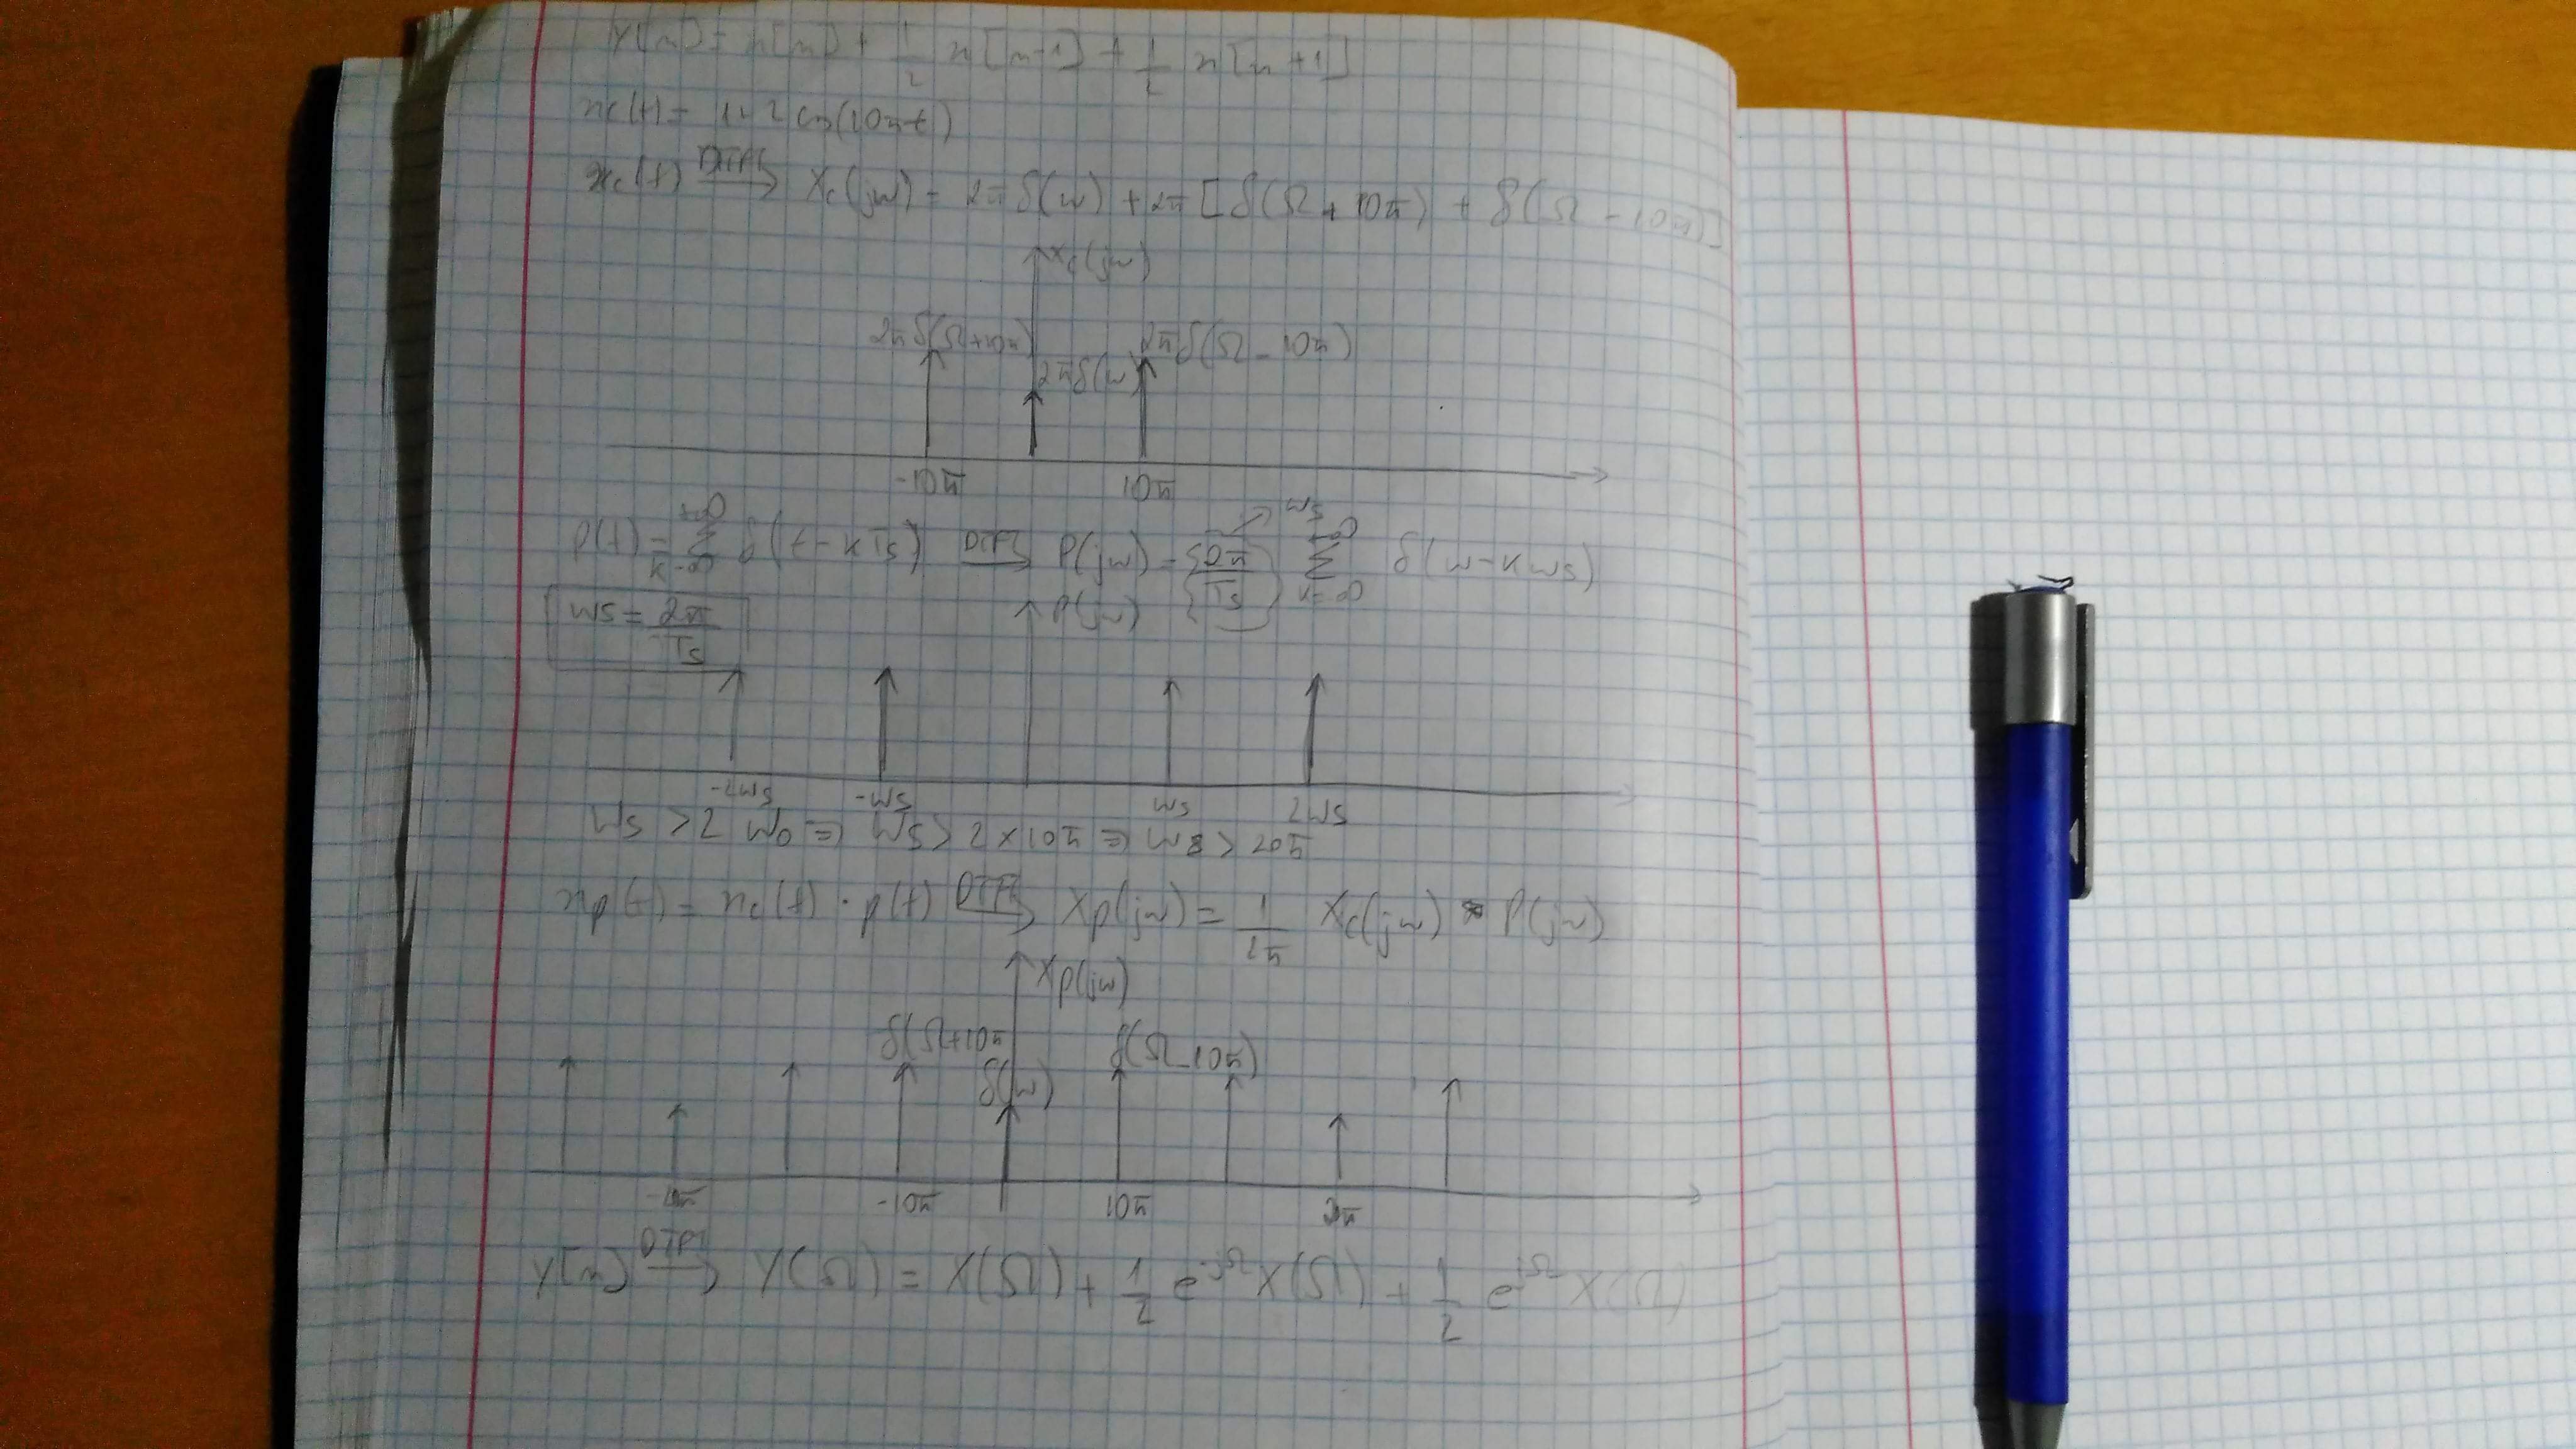 y[n] = x[n] + 1/2 x[n-1] + 1/2 x[n+1]
xc(t) = 1+2cos(10πt)
xc(t) DTFT→ Xc(jw) = 2πδ(w) + 2π[δ(Ω+10π) + δ(Ω-10π)]
Xc(jw)
2πδ(Ω+10π) 2πδ(w) 2πδ(Ω-10π)
-10π 10π
p(t) = Σ k=-∞ +∞ δ(t-kTs) → P(jw) = 2π/Ts Σ k=-∞ +∞ δ(w-kws)
ws
ws = 2π/Ts
P(jw)
-2ws -ws ws 2ws
ws < 2w0 = ws < 2×10π = ws < 20π
xp(t) = xc(t)·p(t) DTFT→ Xp(jw) = 1/2π Xc(jw) * P(jw)
Xp(jw)
δ(Ω+10π δ(w) δ(Ω-10π)
-10π 10π
y[n] DTFT→ Y(Ω) = X(Ω) + 1/2 e^-jΩ X(Ω) + 1/2 e^jΩ X(Ω)